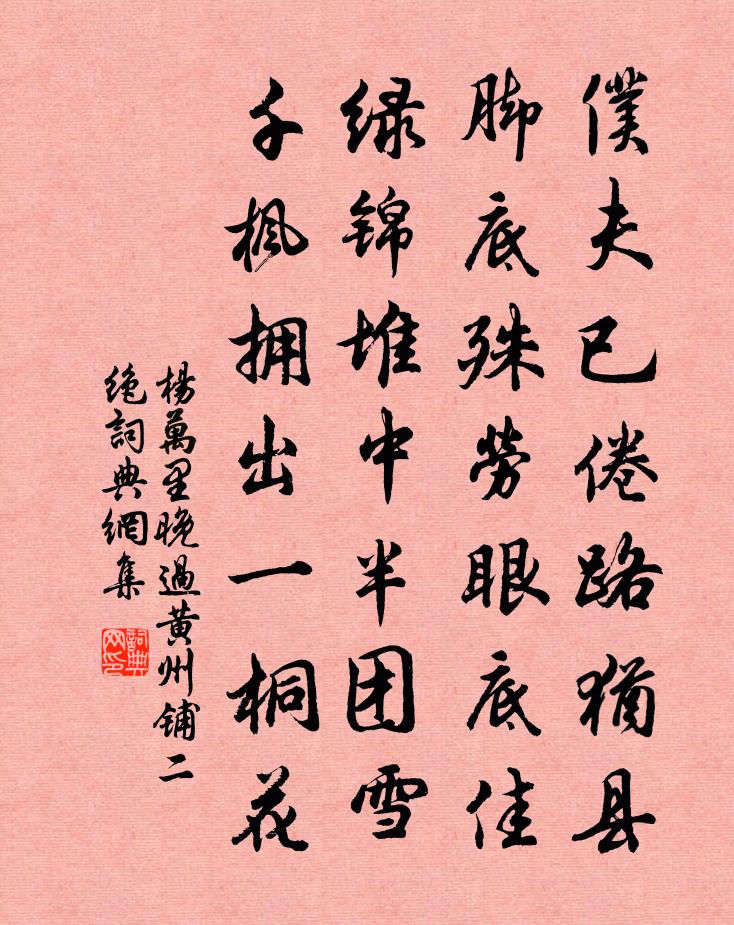 僕夫已倦路猶县
脚底殊劳眼底佳
绿锦堆中半团雪
千枫拥出一桐花
楊萬里晚過黄州铺二
绝詞典網集
詞典网印